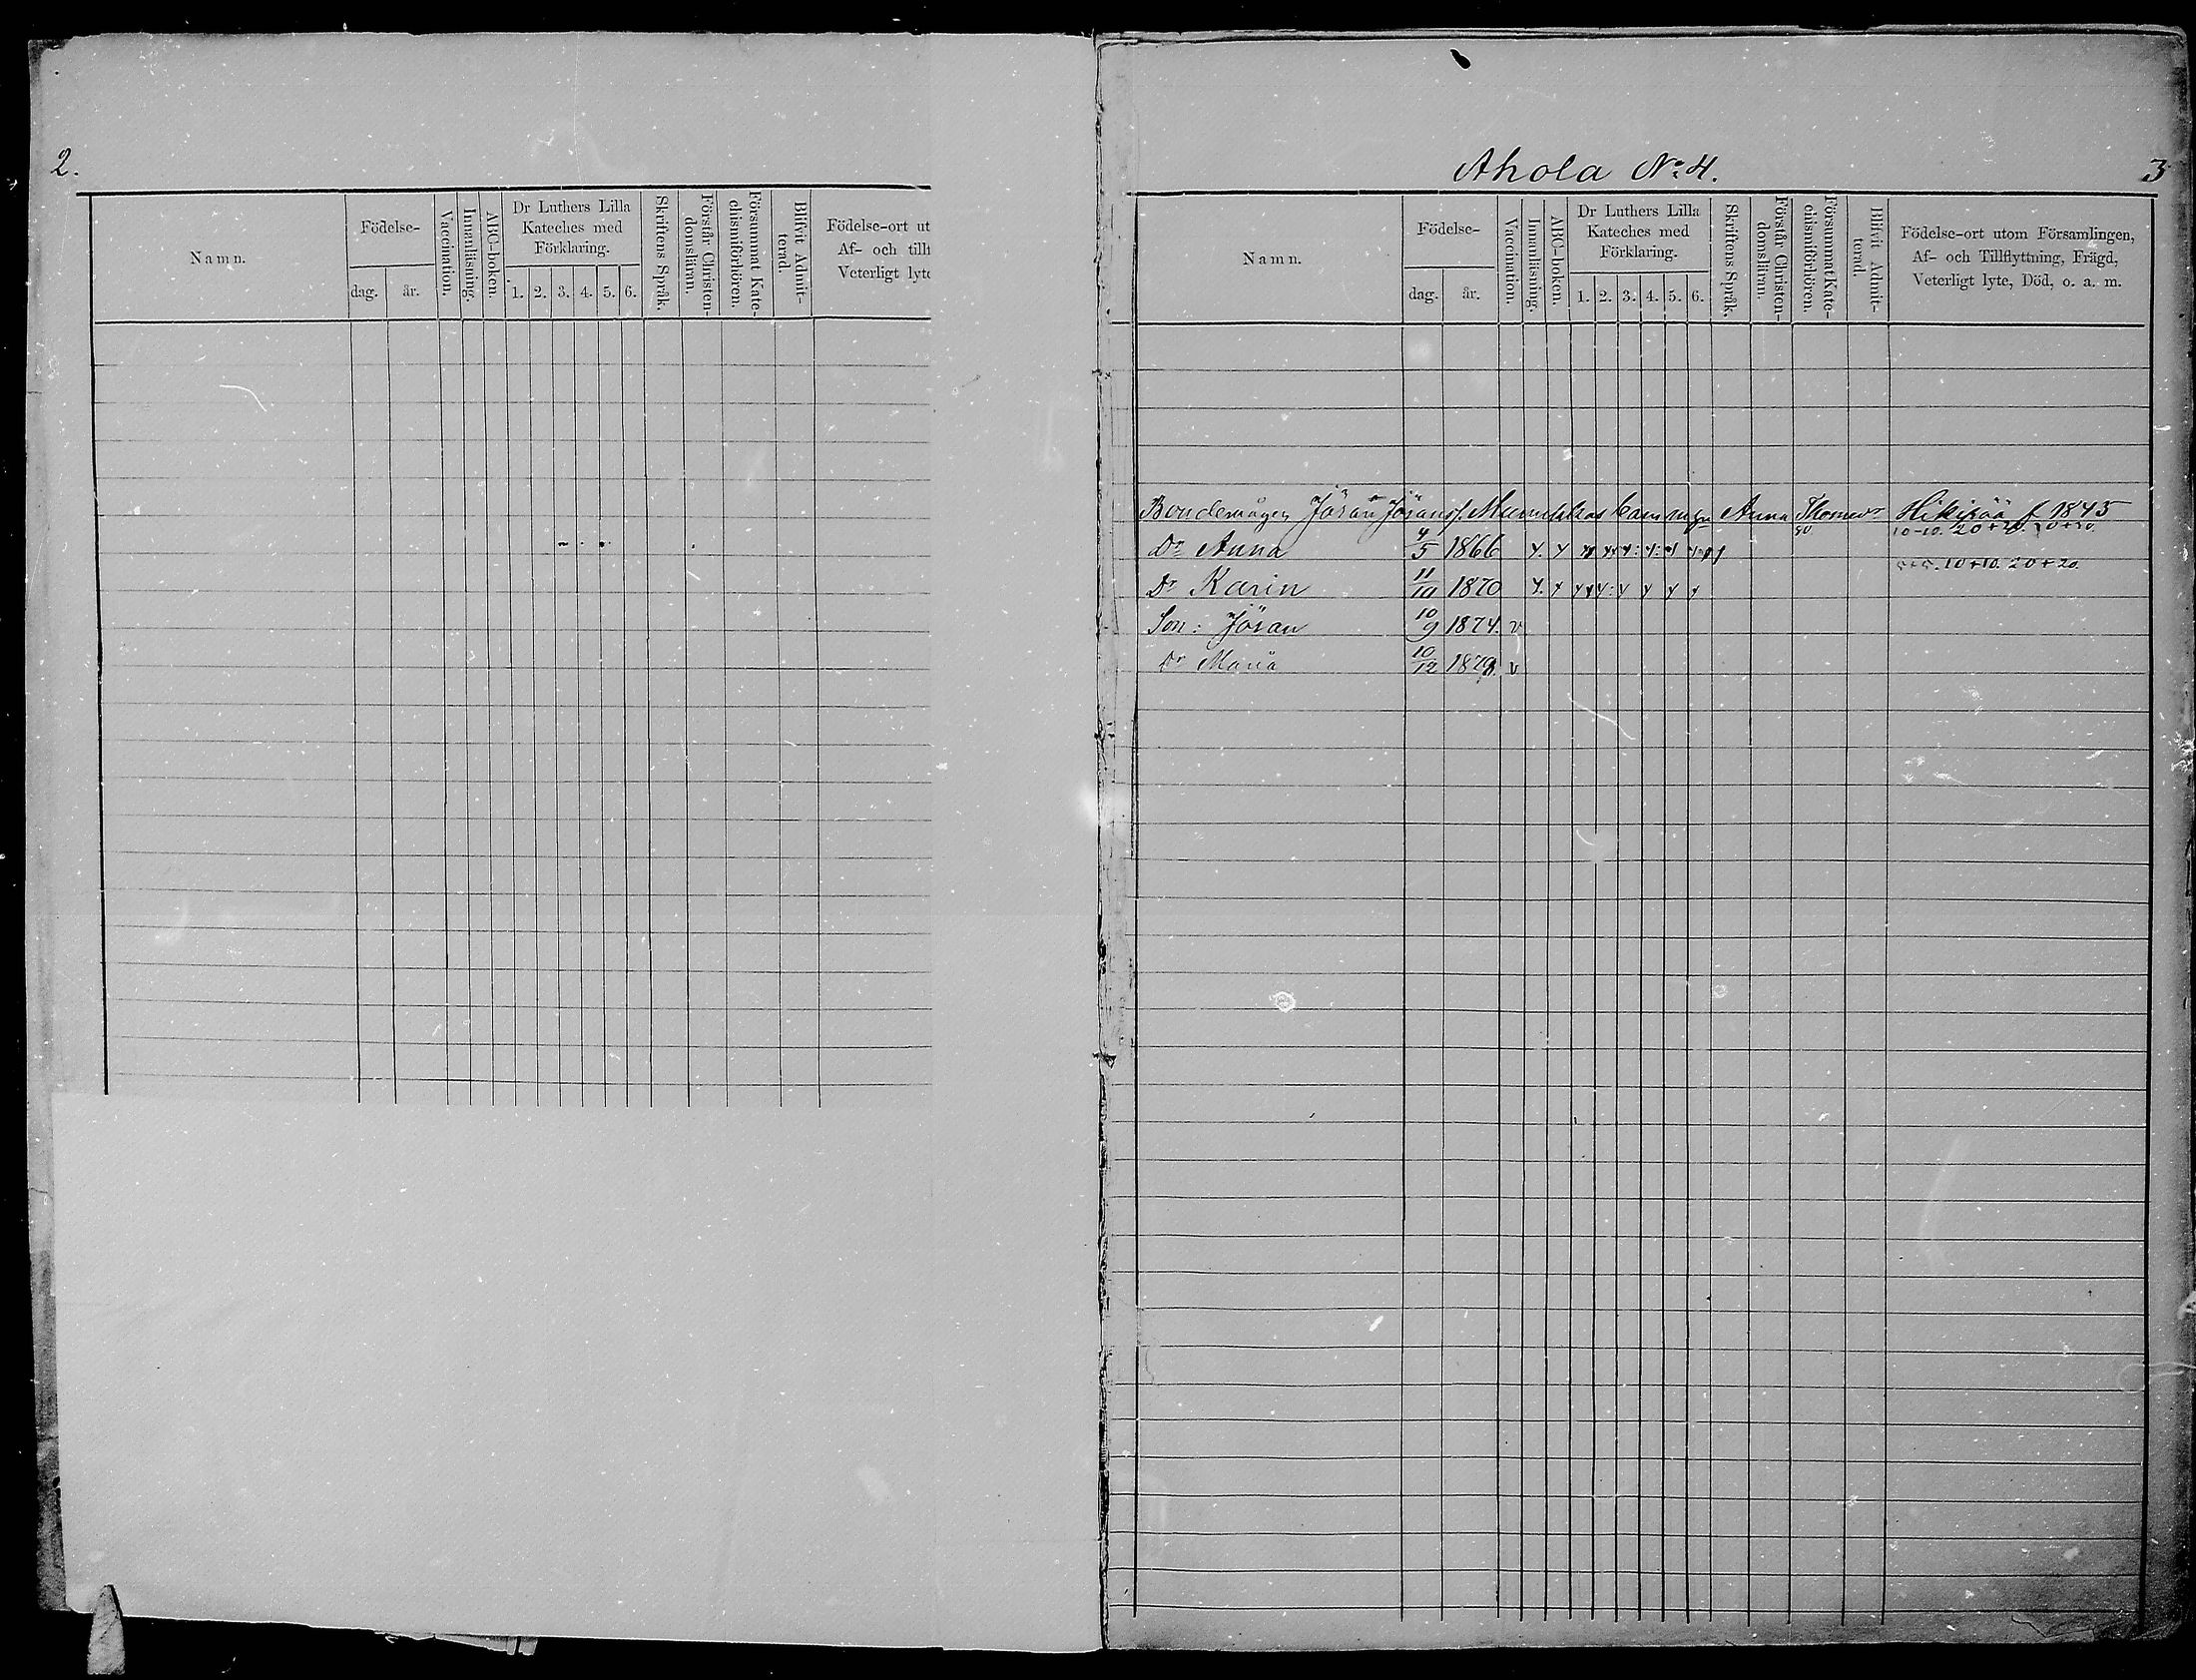 2.
Namn.
Födelse-
dag.
år.
Vaccination.
Innanläsning.
ABC-boken.
Dr Luthers Lilla
Kateches med
Förklaring.
1. 2. 3. 4. 5. 6.
Skriftens Språk.
Förstår Christen-
domsläran.
Försummat Kate-
chismiförhören.
Blifvit Admit-
terad.
Födelse-ort ut
Af- och till
Veterligt lyte
Ahola No 4.
3
Namn.
Födelse-
dag.
år.
Vaccination.
Innanläsning.
ABC-boken.
Dr Luthers Lilla
Kateches med
Förklaring.
1. 2. 3. 4. 5. 6.
Skriftens Språk.
Förstår Christen-
domsläran.
Försummat Kate-
chismiförhören.
Blifvit Admit-
terad.
Födelse-ort utom Församlingen,
Af- och Tillflyttning, Frägd,
Veterligt lyte, Död, o. a. m.
Bondemågen Jöran Jöranss. Munukkas barn m. Anna Thomasdr Hikipää f 1845
50
10-10. 20+20. 20+20.
Dr Anna 4/5 1866
5+5. 10+10. 20+20.
Dr Karin 11/10 1870
Son: Jöran 10/9 1874. v
Dr Maria 10/12 1878. v